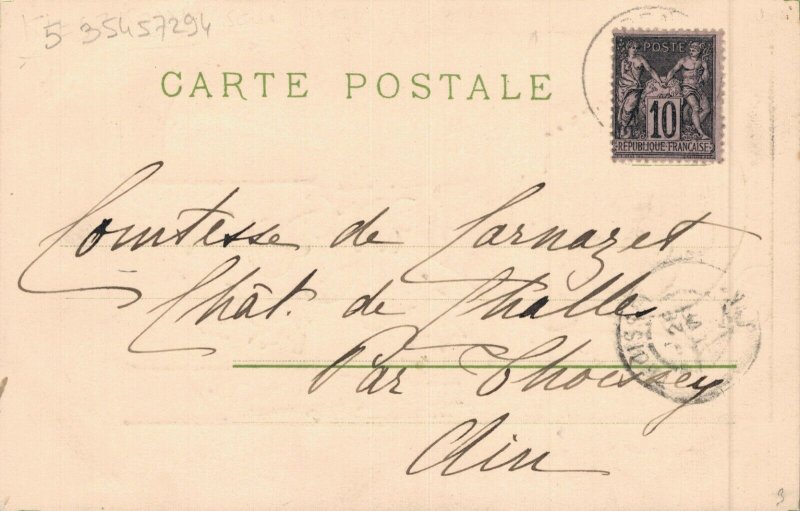 5 35457294
CARTE POSTALE
POSTE
10
RÉPUBLIQUE FRANÇAISE
Comtesse de Carnazet
Chât. de Challes
Par Thoissey
Ain
3